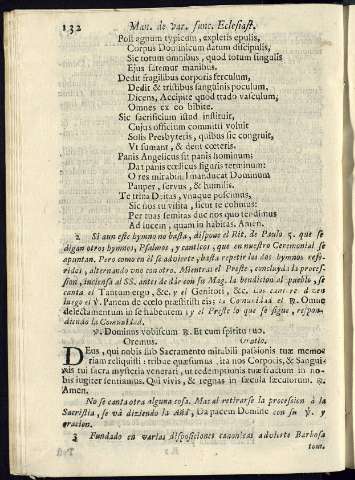 132 Man. de var. func. Eclesiast.
Post agnum typicum, expletis epulis,
Corpus Dominicum datum discipulis,
Sic totum omnibus, quod totum singulis
Ejus fatemur manibus.
Dedit fragilibus corporis ferculum,
Dedit & tristibus sanguinis poculum,
Dicens, Accipite quod trado vasculum,
Omnes ex eo bibite.
Sic sacrificium istud instituit,
Cujus officium committi voluit
Solis Presbyteris, quibus sic congruit,
Vt sumant, & dent cæteris.
Panis Angelicus fit panis hominum:
Dat panis cœlicus figuris terminum:
O res mirabilis, manducat Dominum
Pauper, servus, & humilis.
Te trina Deitas, vnaque poscimus,
Sic nos tu visita, sicut te colimus:
Per tuas semitas duc nos quo tendimus
Ad lucem, quam inhabitas. Amen.
2 Si aun este hymno no basta, dispone el Rit. de Paulo 5. que se
digan otros hymnos, Psalmos, y canticos, que en nuestro Ceremonial se
apuntan. Pero como en èl se advierte, basta repetir los dos hymnos refe-
ridos, alternando vno con otro. Mientras el Preste, concluyda la proces-
sion, inciensa al SS. antes de dàr con su Mag. la bendicion al pueblo, se
canta el Tantum ergo, &c. y el Genitori, &c.
luego el ℣. Panem de cælo præstitisti eis; la Comunidad el ℟. Omne
delectamentum in se habentem; y el Preste lo que se sigue, respon-
diendo la Comunidad.
℣. Dominus vobiscum ℟. Et cum spiritu tuo.
Oremus. Oratio.
DEus, qui nobis sub Sacramento mirabili passionis tuæ memo-
riam reliquisti: tribue quæsumus, ita nos Corporis, & Sangui-
nis tui sacra mysteria venerari, ut redemptionis tuæ fructum in no-
bis iugiter sentiamus. Qui vivis, & regnas in sæcula sæculorum. ℟.
Amen.
No se canta otra alguna cosa. Mas al retirarse la procession à la
Sacristia, se và diziendo la Aña, Da pacem Domine con su ℣. y
oracion.
3 Fundado en varias disposiciones canonicas advierte Barbosa
tom.